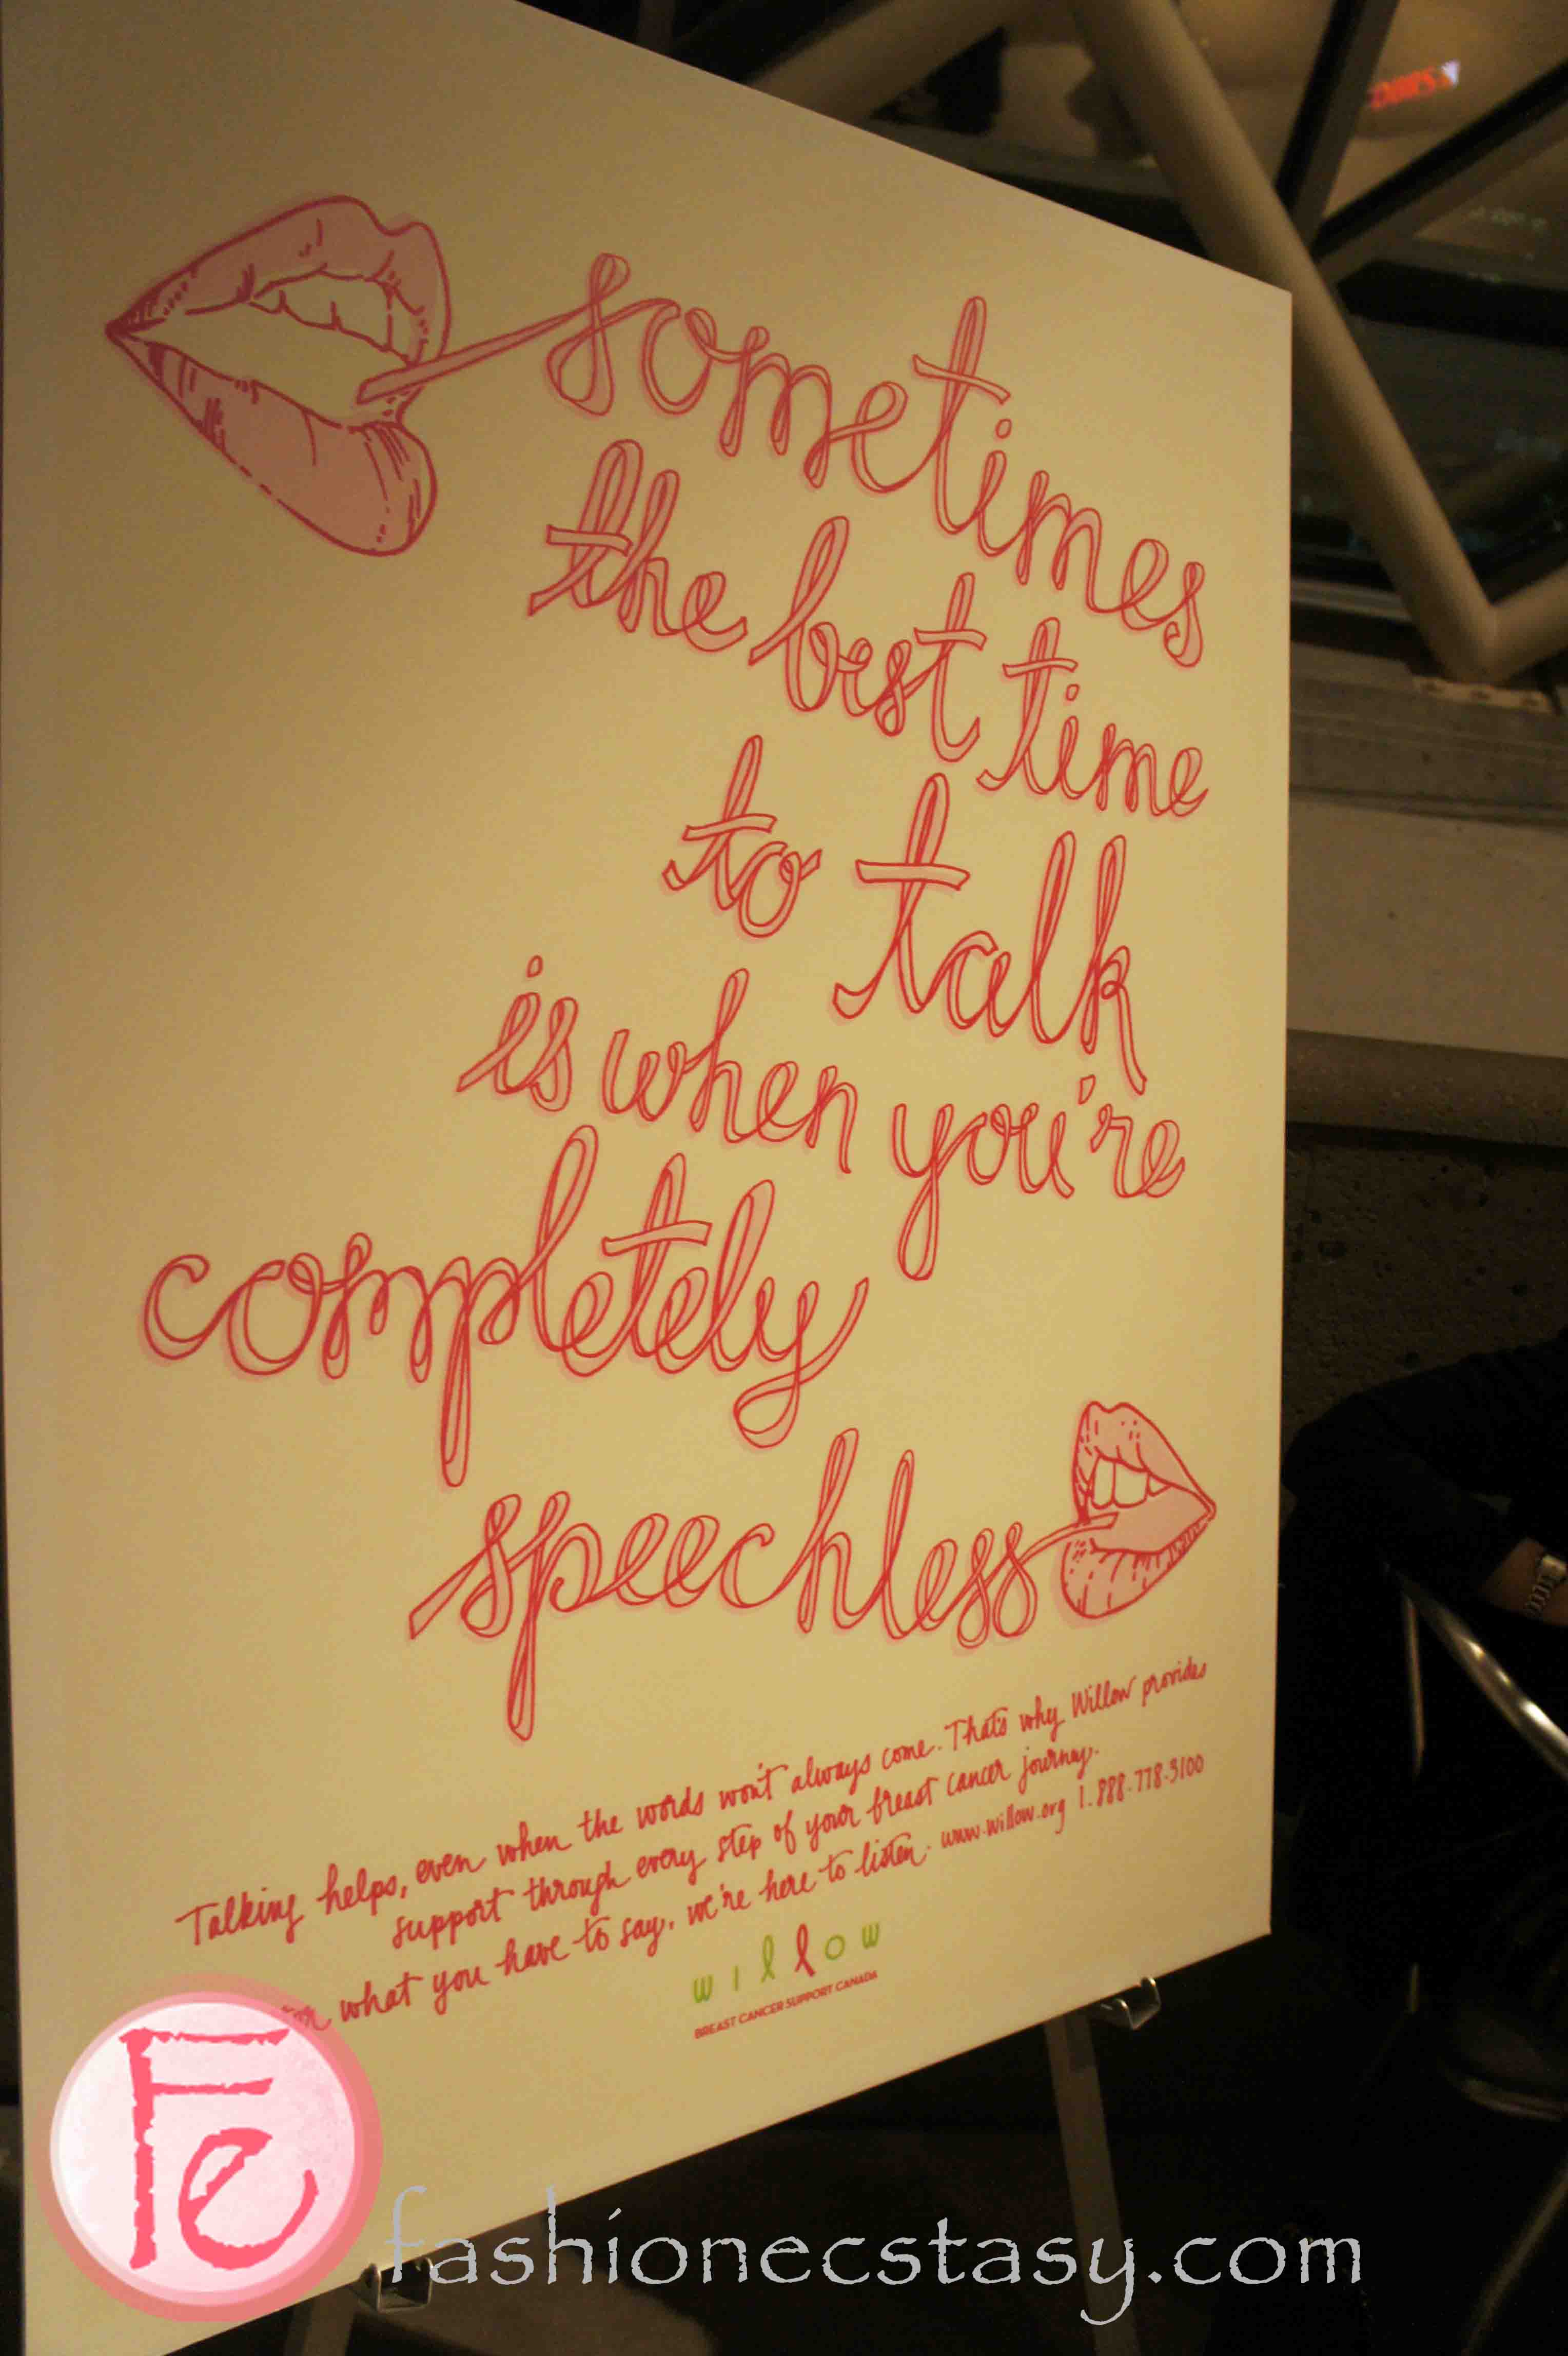 sometimes
the best time
to talk
is when you're
completely
speechless
Talking helps, even when the words won't always come. That's why Willow provides
support through every step of your breast cancer journey.
what you have to say, we're here to listen. www.willow.org 1.888.778.3100
willow
BREAST CANCER SUPPORT CANADA
Fe
fashionecstasy.com